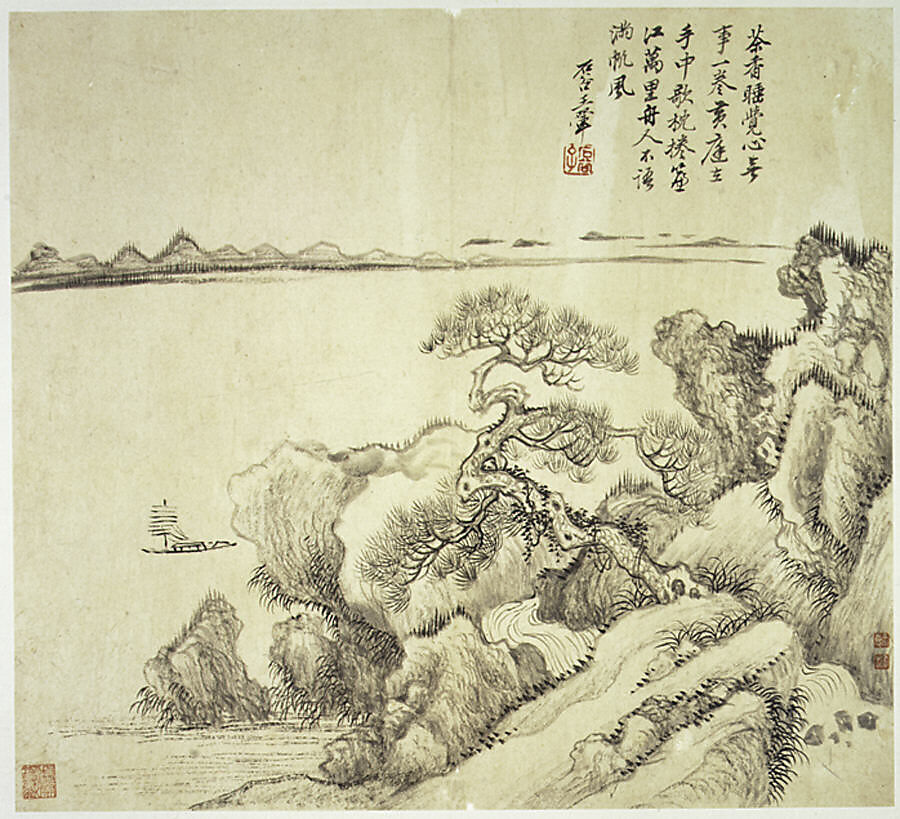 茶香睡覺心無
事一卷黃庭在
手中欹枕捲簾
江萬里舟人不語
滿帆風
石谷王翬